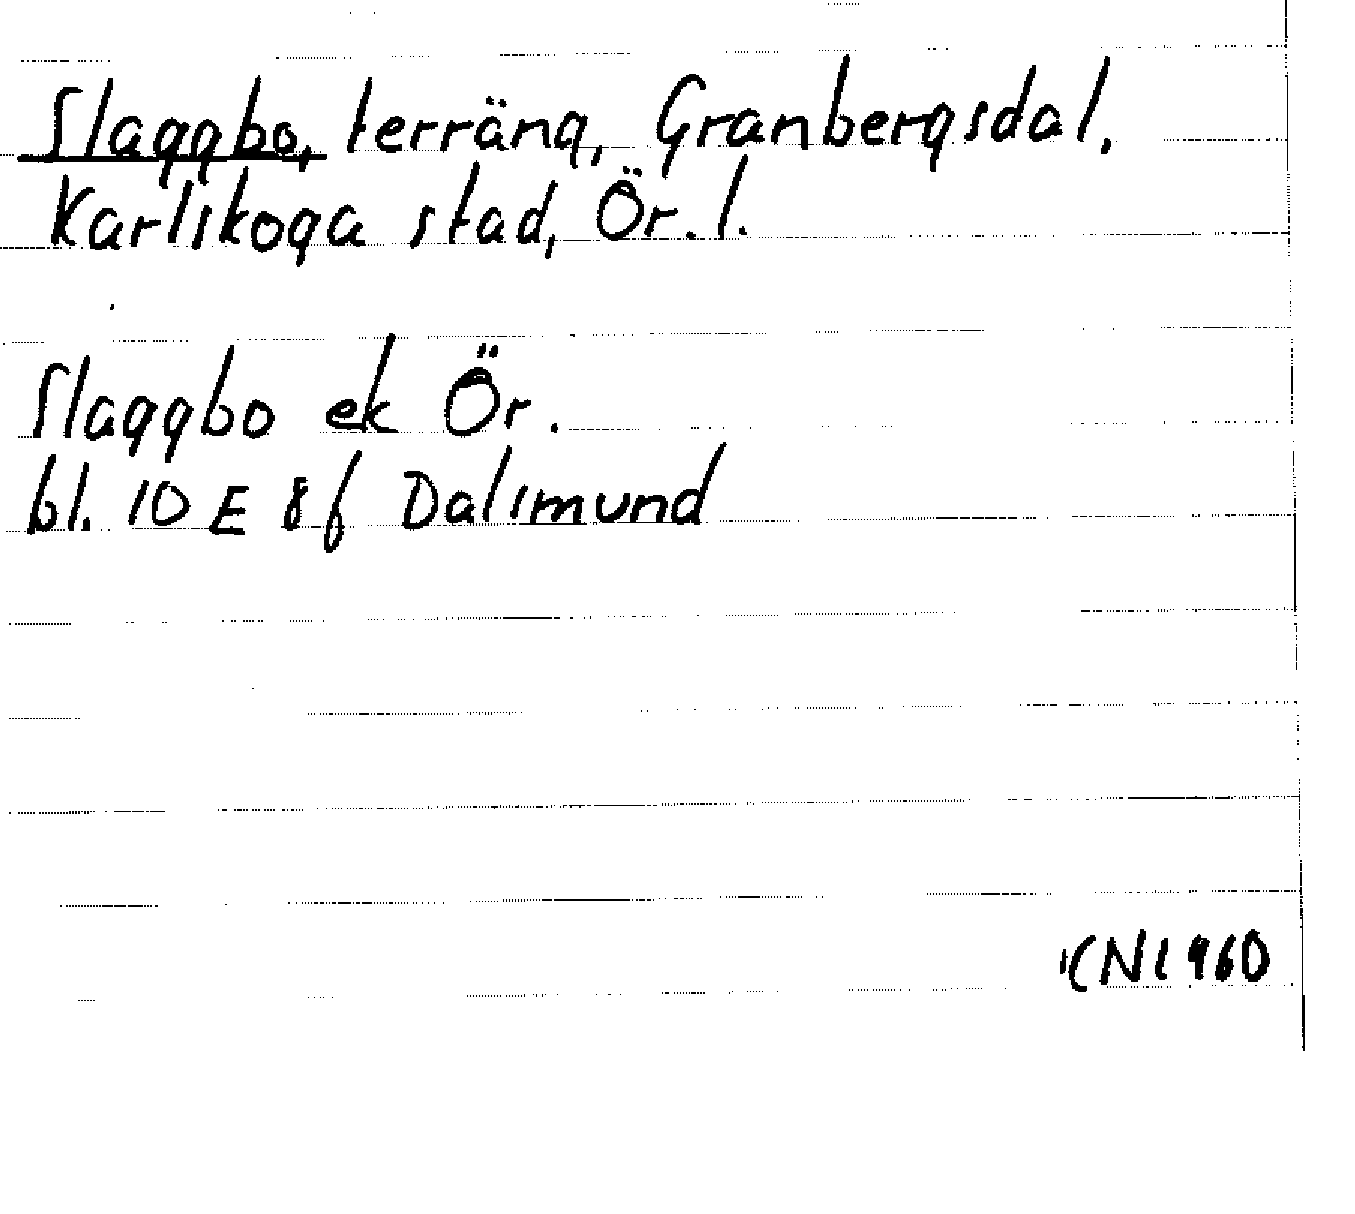 Slaggbo, terräng, Granbergsdal.
Karlskoga stad, Ör. l.
Slaggbo ek Ör.
bl. 10 E 8 f Dalsmund
KN 1960